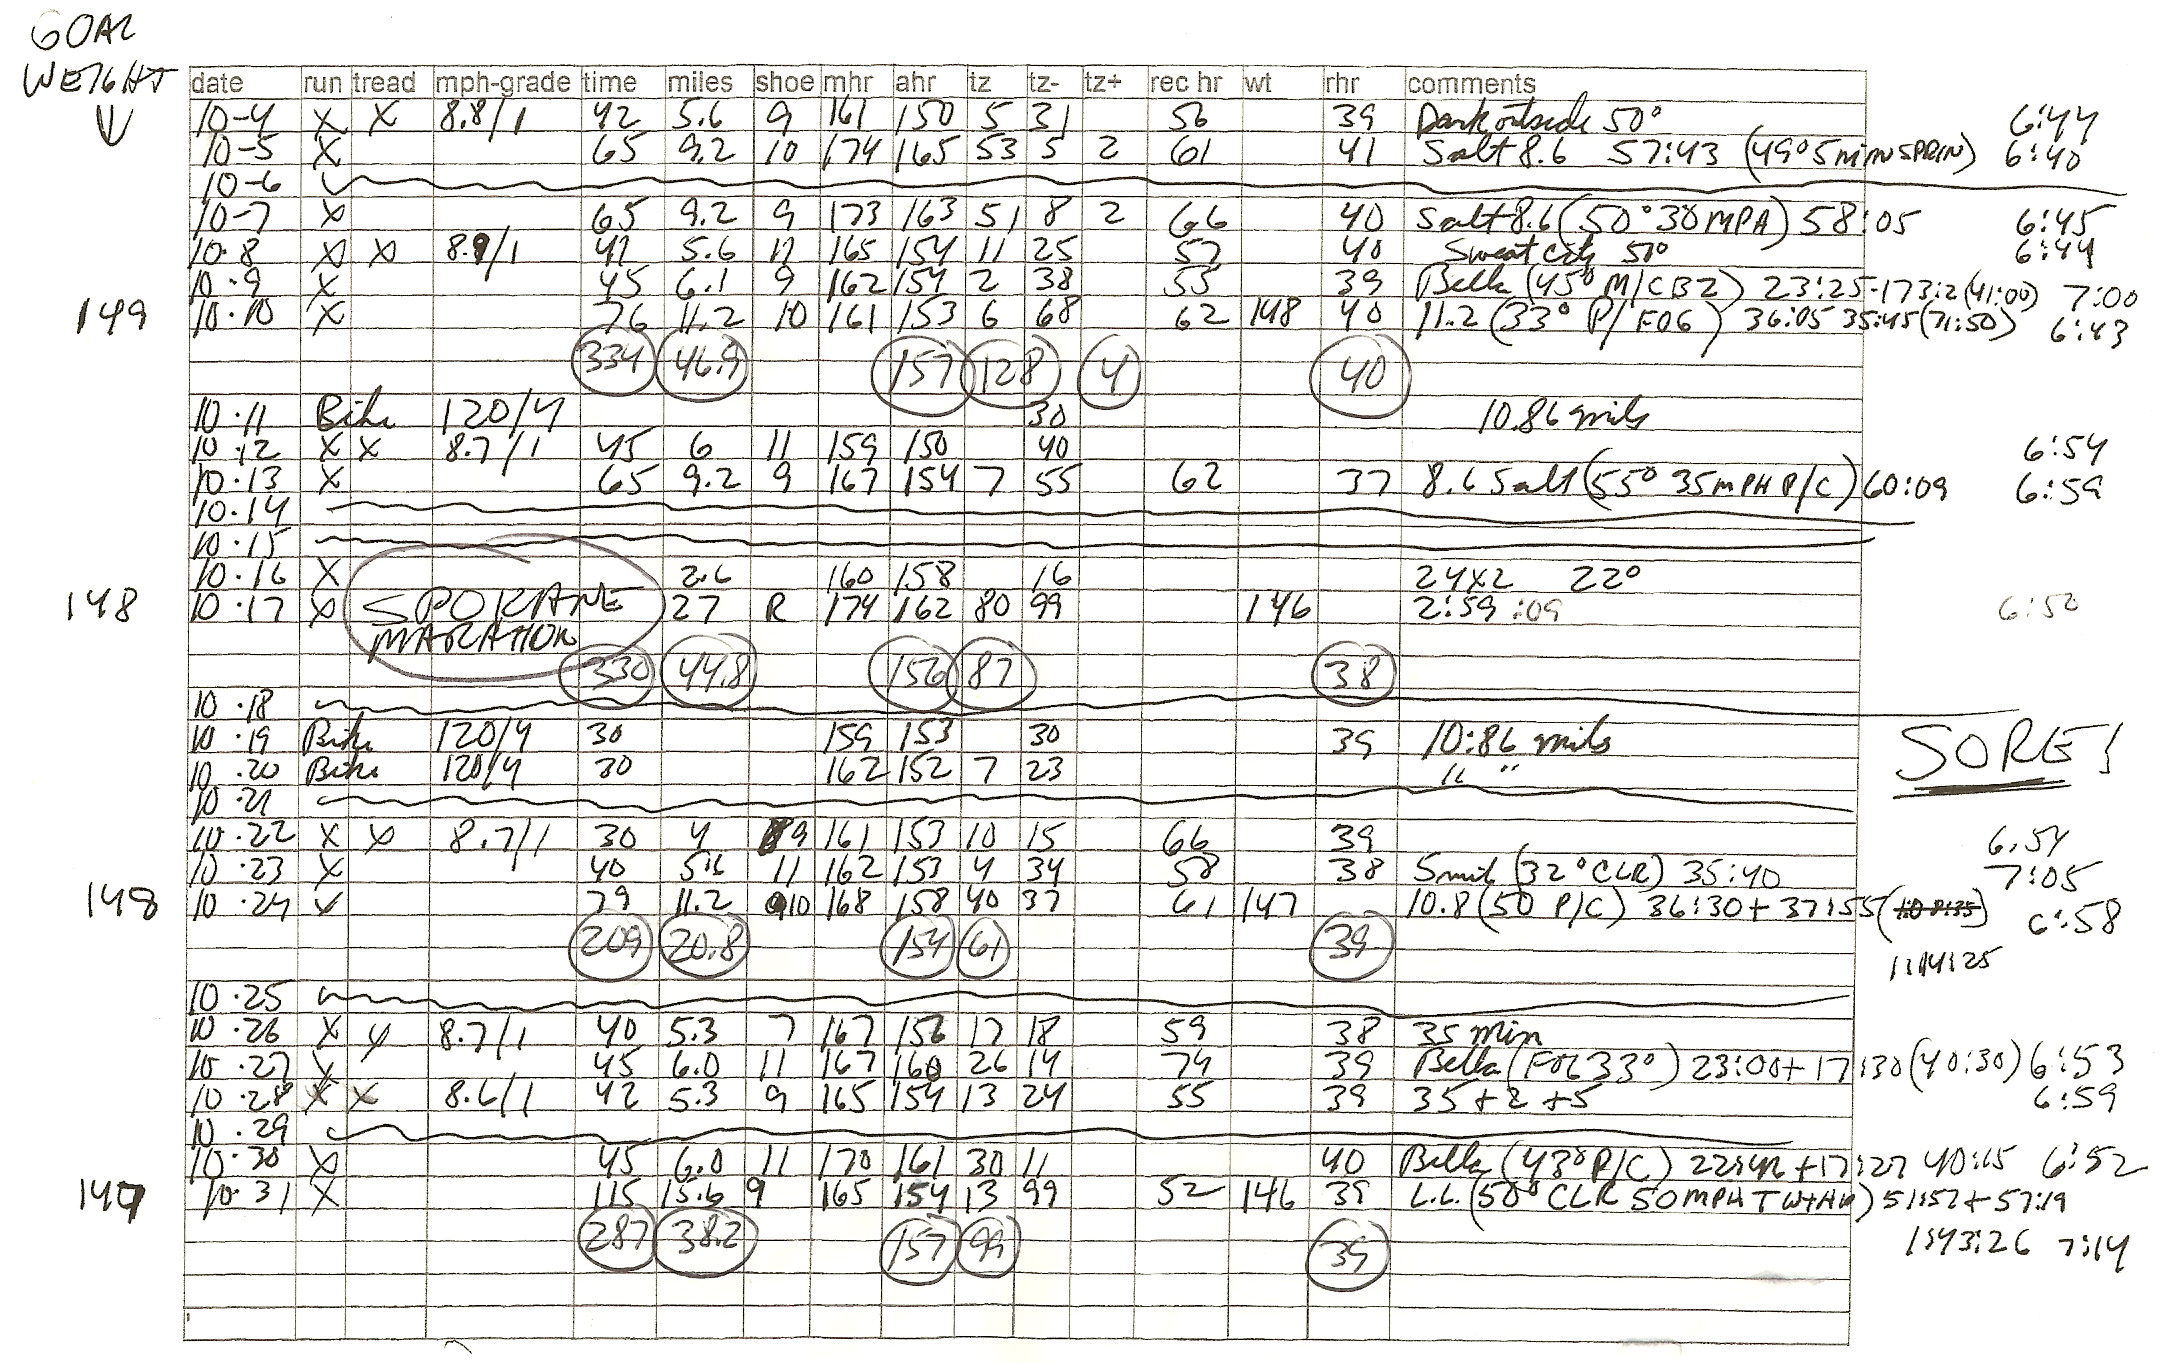 GOAL
WEIGHT
date run tread mph-grade time miles shoe mhr ahr tz tz- tz+ rec hr wt rhr comments
10-4 X X 8.8/1 42 5.6 9 161 150 5 31 56 39 Dark outside 50° 6:44
10-5 X 65 9.2 10 174 165 53 5 2 61 41 Salt 8.6 57:43 (49° 5 min SPRIN) 6:40
10-6
10-7 X 65 9.2 9 173 163 51 8 2 66 40 Salt 8.6 (50° 30 MPH) 58:05 6:45
10.8 X X 8.9/1 41 5.6 11 165 154 11 25 57 40 Sweat city 51° 6:44
10.9 X 45 6.1 9 162 154 2 38 55 39 Bella (45° M/C BZ) 23:25-17:32 (41:00) 7:00
149 10.10 X 76 11.2 10 161 153 6 68 62 148 40 11.2 (33° P/FOG) 36:05 35:45 (71:50) 6:43
334 46.9 157 128 4 40
10.11 Bike 120/4 30 10.86 miles
10.12 X X 8.7/1 45 6 11 159 150 40 6:54
10.13 X 65 9.2 9 167 154 7 55 62 37 8.6 Salt (55° 35 MPH P/C) 60:09 6:59
10.14
10.15
10.16 X 2.6 160 158 16 24X2 22°
148 10.17 X SPOKANE 27 R 174 162 80 99 146 2:59:09 6:50
MARATHON
330 44.8 156 87 38
10.18
10.19 Bike 120/4 30 159 153 30 39 10:86 miles SORE!
10.20 Bike 120/4 30 162 152 7 23 " "
10.21
10.22 X X 8.7/1 30 4 9 161 153 10 15 66 39 6.54
10.23 X 40 5.6 11 162 153 4 34 58 38 5 mile (32° CLR) 35:40 7:05
148 10.24 X 79 11.2 10 168 158 40 37 61 147 10.8 (50 P/C) 36:30 + 37:55 6:58
209 20.8 154 61 39 1:14:25
10.25
10.26 X X 8.7/1 40 5.3 7 167 156 17 18 59 38 35 min
10.27 X 45 6.0 11 167 160 26 14 74 39 Bella (FOG 33°) 23:00 + 17:30 (40:30) 6:53
10.28 X X 8.6/1 42 5.3 9 165 154 13 24 55 39 35 + 2 + 5 6:59
10.29
10.30 X 45 6.0 11 170 161 30 11 40 Bella (43° P/C) 22:42 + 17:27 40:15 6:52
147 10.31 X 115 15.6 9 165 154 13 99 52 146 39 L.L. (50° CLR 50 MPH) 51:52 + 57:19
287 38.2 157 99 39 1:43:26 7:14